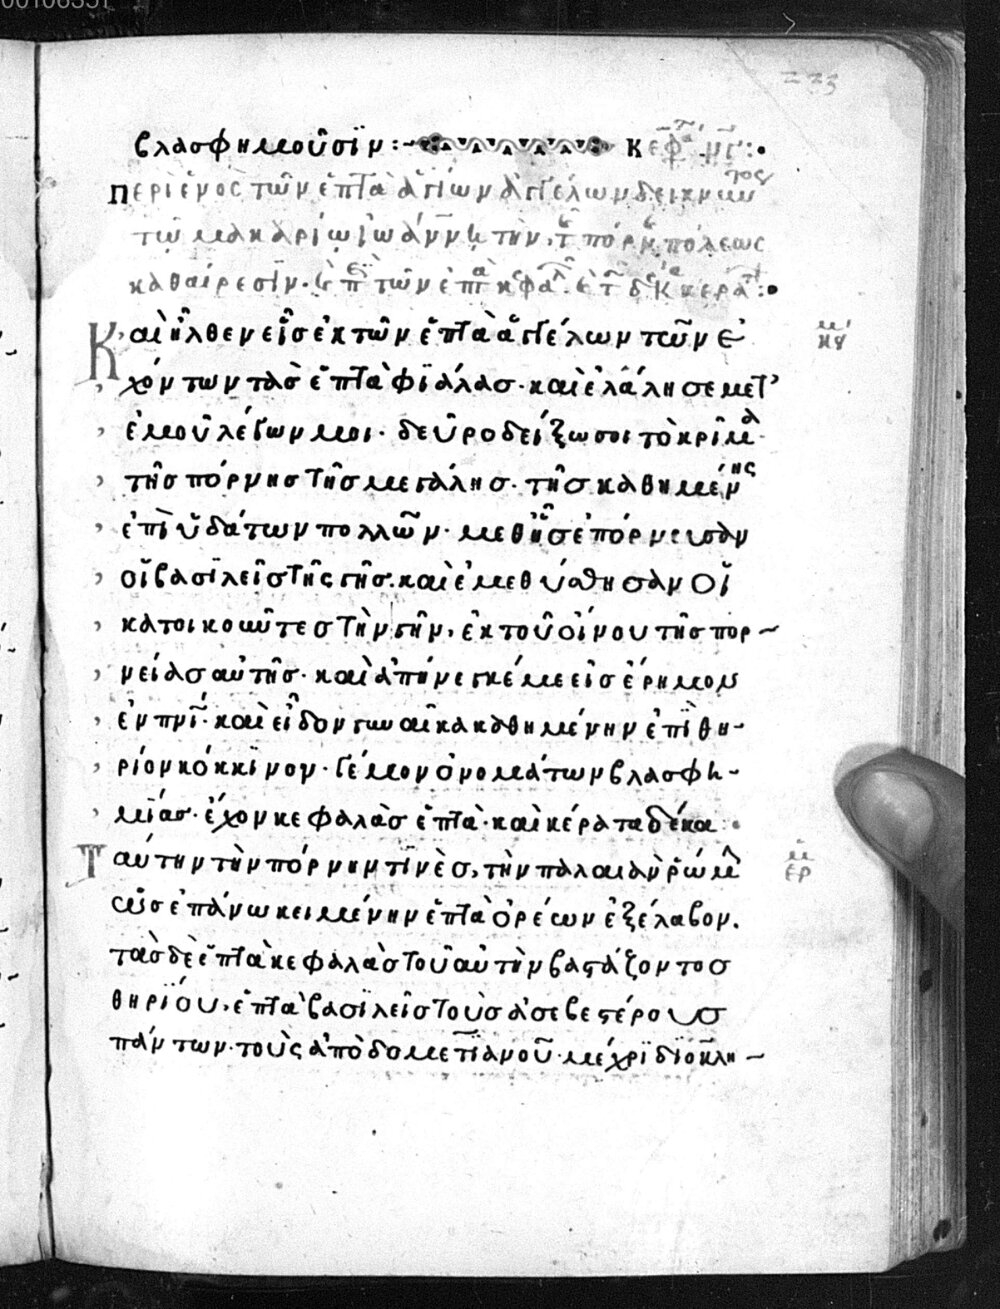 βλασφημοῦσϊν :~ Κεφ
Περὶ ἑνὸς τῶν ἑπτὰ ἁγίων ἀγγέλων δεικνῦντος
τῶ μακαρίω ἰωάννη τὴν τ πόρν πόλεως
καθαίρεσϊν· τῶν ἑπτὰ κεφαλ
Καὶ ἦλθεν εἷσ ἐκ τῶν ἑπτὰ ἀγγέλων τῶν ἐ
χόντων τὰσ ἑπτὰ φϊάλασ· καὶ ἐλάλησε μετ'
ἐμοῦ λέγων μοι· δεῦρο δείξω σοι τὸ κρῖμα
τῆσ πόρνησ τῆσ μεγάλησ· τῆσ καθημένης
ἐπὶ ὑδάτων πολλῶν· μεθ' ἧσ ἐπόρνευσαν
οἱ βασϊλεῖσ τῆς γῆσ· καὶ ἐμεθύσθησαν οἱ
κατοικοῦντεσ τὴν γῆν, ἐκ τοῦ οἴνου τῆσ πορ~
νείασ αὐτῆσ· καὶ ἀπήνεγκέ με εἰσ ἔρημον
ἐν πνϊ· καὶ εἶδον γυναῖκα καθημένην ἐπὶ θη-
ρίον κόκκϊνον· γέμον ὀνομάτων βλασφη-
μίασ· ἔχον κεφαλὰσ ἑπτὰ· καὶ κέρατα δέκα·
Ταύτην τὴν πόρνην τϊνὲσ, τὴν παλαιὰν ῥώμ
ὡσ ἐπάνω κειμένην ἑπτὰ ὀρέων ἐξέλαβον.
τὰσ δὲ ἑπτὰ κεφαλὰσ τοῦ αὐτὴν βαστάζοντοσ
θηρϊου, ἑπτὰ βασϊλεῖσ τοὺσ ἀσεβεστέρουσ
πάντων· τοὺς ἀπὸ δομετϊανοῦ· μέχρϊ δϊοκλη~